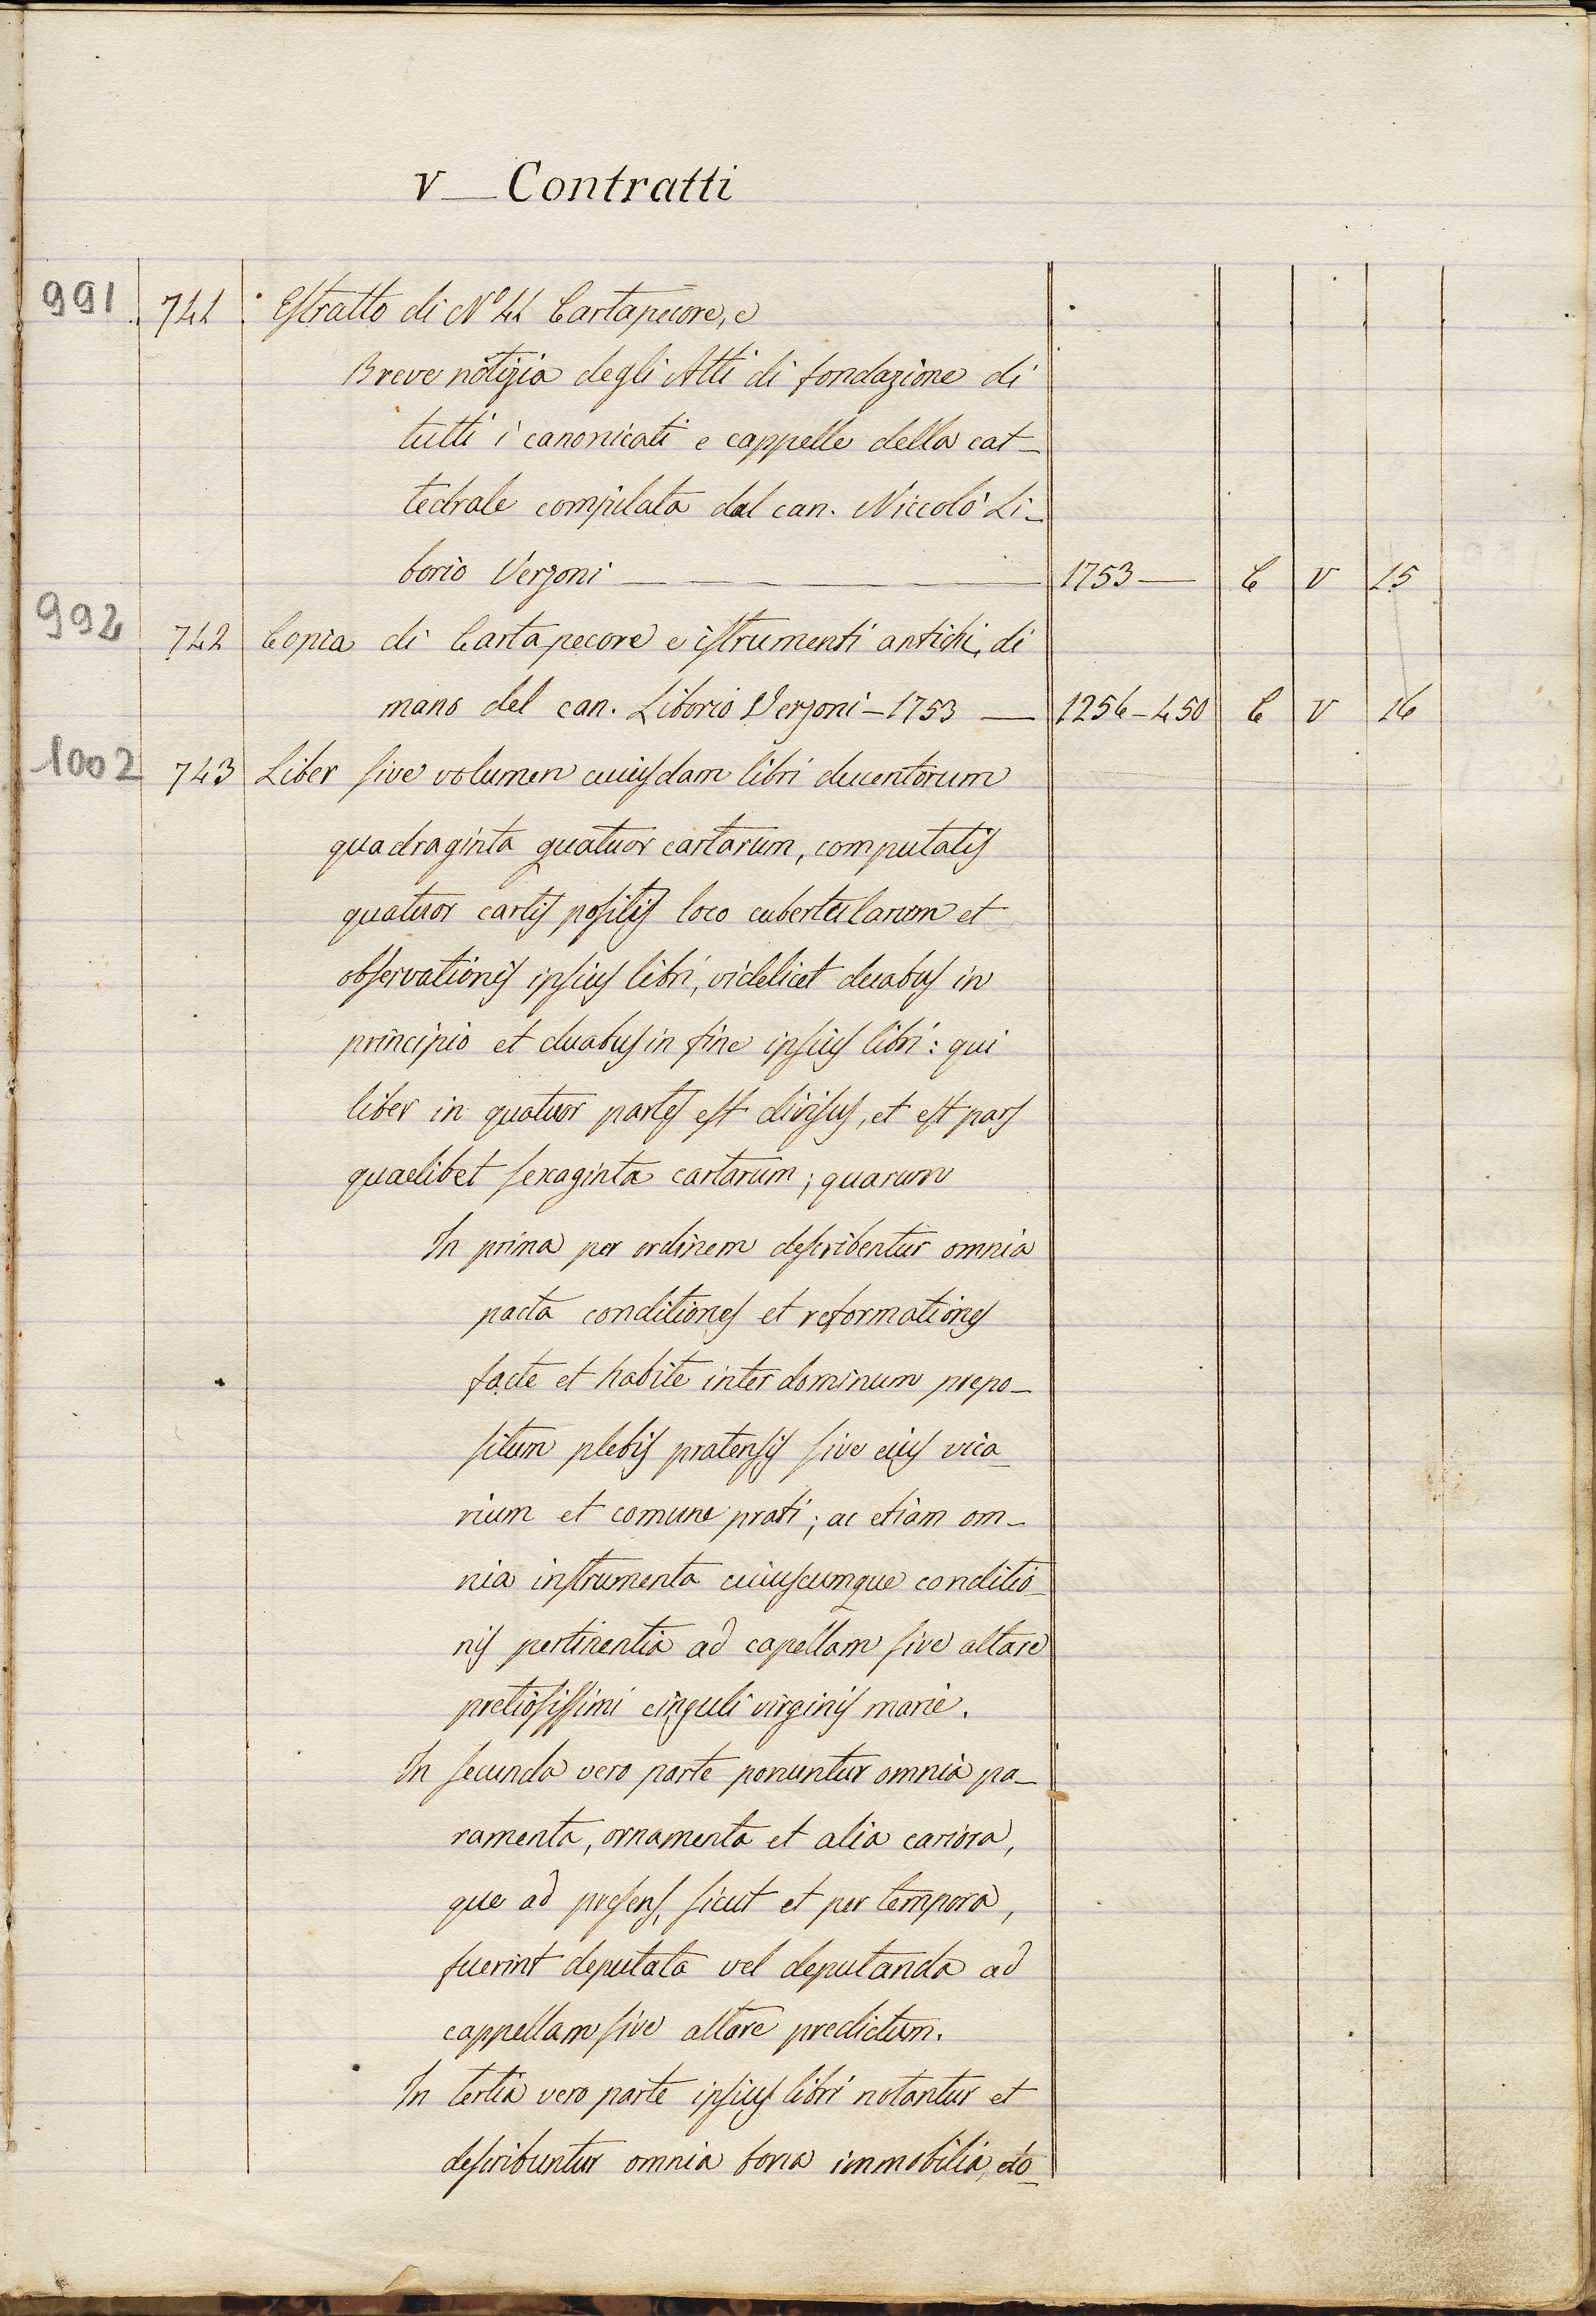 V — Contratti
991 741 Estratto di Nº 41 Cartapecore, e
Breve notizia degli Atti di fondazione di
tutti i canonicati e cappelle della cat-
tedrale compilata dal can. Niccolò Li-
borio Verzoni — 1753 — C V 15
992 742 Copia di Cartapecore e istrumenti antichi, di
mano del can. Liborio Verzoni - 1753 — 1256-450 C V 16
1002 743 Liber sive volumen cuiusdam libri ducentorum
quadraginta quatuor cartarum, computatis
quatuor cartis positis loco cubertularum et
observationis ipsius libri, videlicet duabus in
principio et duabus in fine ipsius libri: qui
liber in quatuor partes est divisus, et est pars
quaelibet sexaginta cartarum; quarum
In prima per ordinem describentur omnia
pacta conditiones et reformationes
facte et habite inter dominum prepo-
situm plebis pratensis sive eius vica-
rium et comune prati; ac etiam om-
nia instrumenta cuiuscumque conditio-
nis pertinentia ad capellam sive altare
pretiosissimi cinguli virginis marie.
In secunda vero parte ponuntur omnia pa-
ramenta, ornamenta et alia cariora,
que ad presens, sicut et per tempora,
fuerint deputata vel deputanda ad
cappellam sive altare predictum.
In tertia vero parte ipsius libri notantur et
describuntur omnia bona immobilia, do-